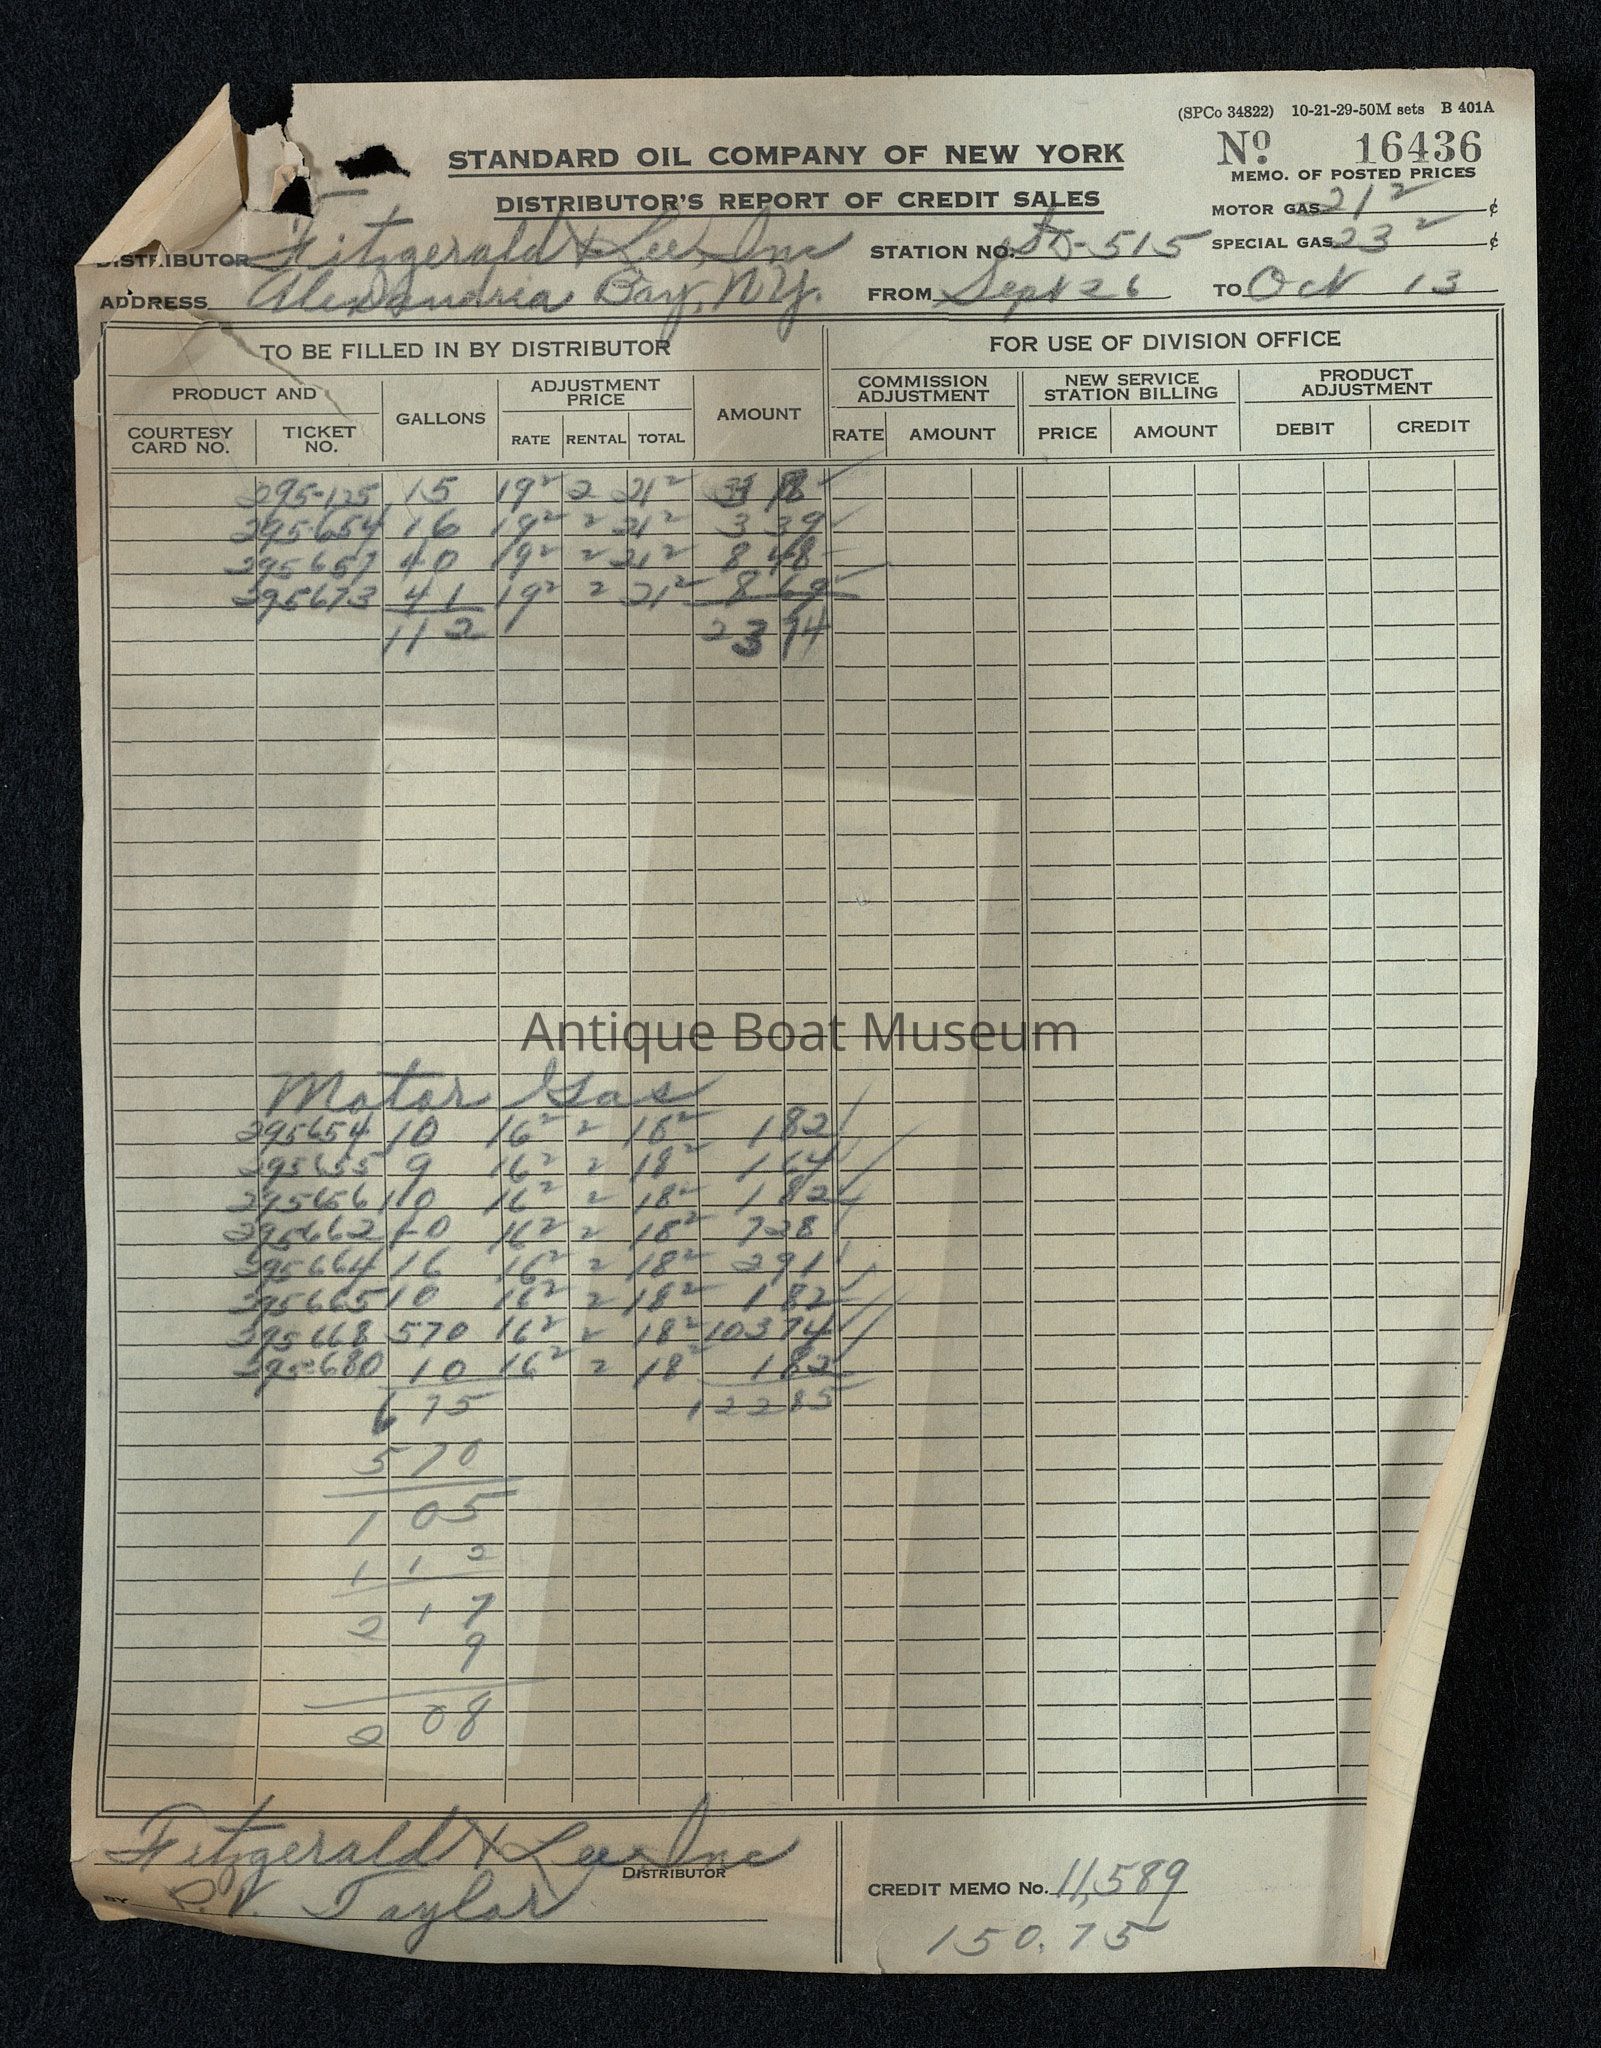 (SPCo 34822) 10-21-29-50M sets B 401A
No 16436
STANDARD OIL COMPANY OF NEW YORK
MEMO. OF POSTED PRICES
DISTRIBUTOR'S REPORT OF CREDIT SALES
MOTOR GAS 21 2 ¢
DISTRIBUTOR Fitzgerald & Lee, Inc STATION NO. SS-515 SPECIAL GAS 23 2 ¢
ADDRESS Alexandria Bay, N.Y. FROM Sept 26 TO Oct 13
TO BE FILLED IN BY DISTRIBUTOR FOR USE OF DIVISION OFFICE
PRODUCT AND GALLONS ADJUSTMENT PRICE AMOUNT COMMISSION ADJUSTMENT NEW SERVICE STATION BILLING PRODUCT ADJUSTMENT
COURTESY CARD NO. TICKET NO. RATE RENTAL TOTAL RATE AMOUNT PRICE AMOUNT DEBIT CREDIT
295-125 15 19 2 2 21 2 3 18
295654 16 19 2 2 21 2 3 39
295657 40 19 2 2 21 2 8 48
295673 41 19 2 2 21 2 8 69
112 23 74
Antique Boat Museum
Motor Gas
295654 10 16 2 2 18 2 1 82
295655 9 16 2 2 18 2 1 64
295656 10 16 2 2 18 2 1 82
295662 40 16 2 2 18 2 7 28
295664 16 16 2 2 18 2 2 91
295665 10 16 2 2 18 2 1 82
295668 570 16 2 2 18 2 103 74
295680 10 16 2 2 18 2 1 82
675 122 85
570
105
112
217
9
208
Fitzgerald & Lee Inc
DISTRIBUTOR
BY P.V. Taylor
CREDIT MEMO No. 11,589
150.75